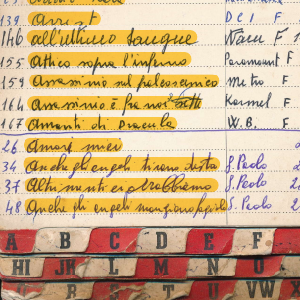 139 Arrest D C I F
146 all'ultimo sangue Warn F 1
155 Attico sopra l'inferno Paramount F
159 Assassinio sul palcoscenico Metro F
164 Assassinio è fra noi Karmel F
167 Amanti di Dracula W.B. F
26 Amori miei
34 Anche gli angeli tirano destro S. Paolo 2
37 Altrimenti ci arrabbiamo S. Paolo 2
48 Anche gli angeli mangiano fagioli S. Paolo 2
A B C D E F
HI JK L M N O
R S T U VW X